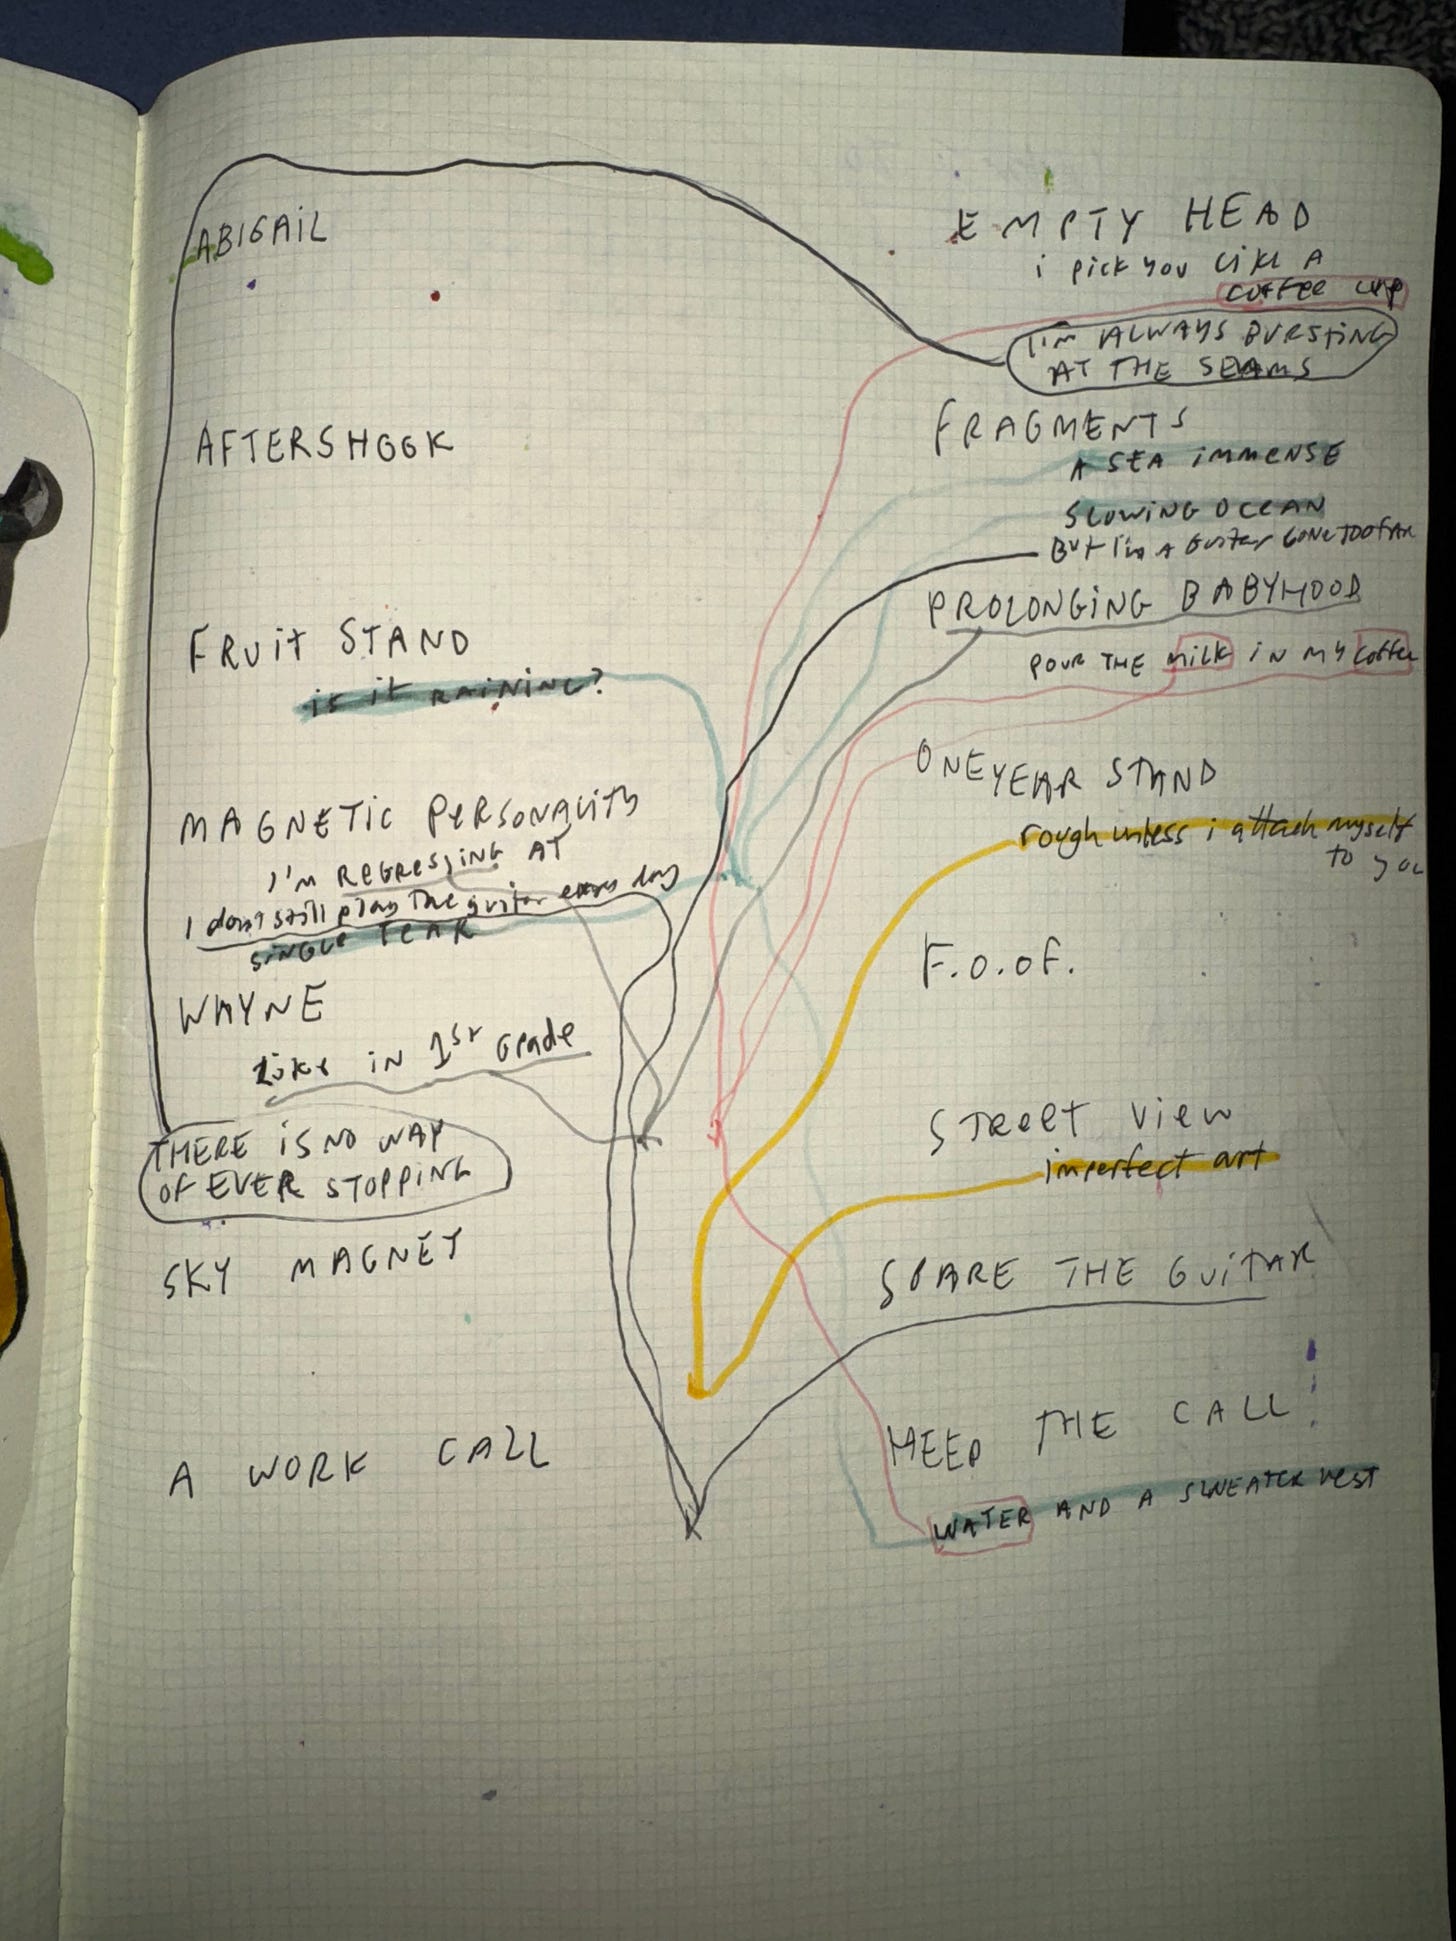 ABIGAIL
AFTERSHOCK
FRUIT STAND
is it raining?
MAGNETIC PERSONALITY
I'M REGRESSING AT
I don't still play the guitar every day
SINGLE TEAR
WAYNE
Like in 1st Grade
THERE iS NO WAY
OF EVER STOPPING
SKY MAGNET
A WORK CALL
EMPTY HEAD
i pick you like A
coffee cup
I'm ALWAYS BURSTING
AT THE SEAMS
FRAGMENTS
A SEA immENSE
SLOWING OCEAN
But I'm A Guitar GONE TOO FAR
PROLONGING BABYHOOD
POUR THE MILK IN MY coffee
ONE YEAR STAND
rough unless i attach myself
to you
F.O.OF.
STREET View
imperfect art
SPARE THE GUITAR
HEED THE CALL!
WATER AND A SWEATER VEST